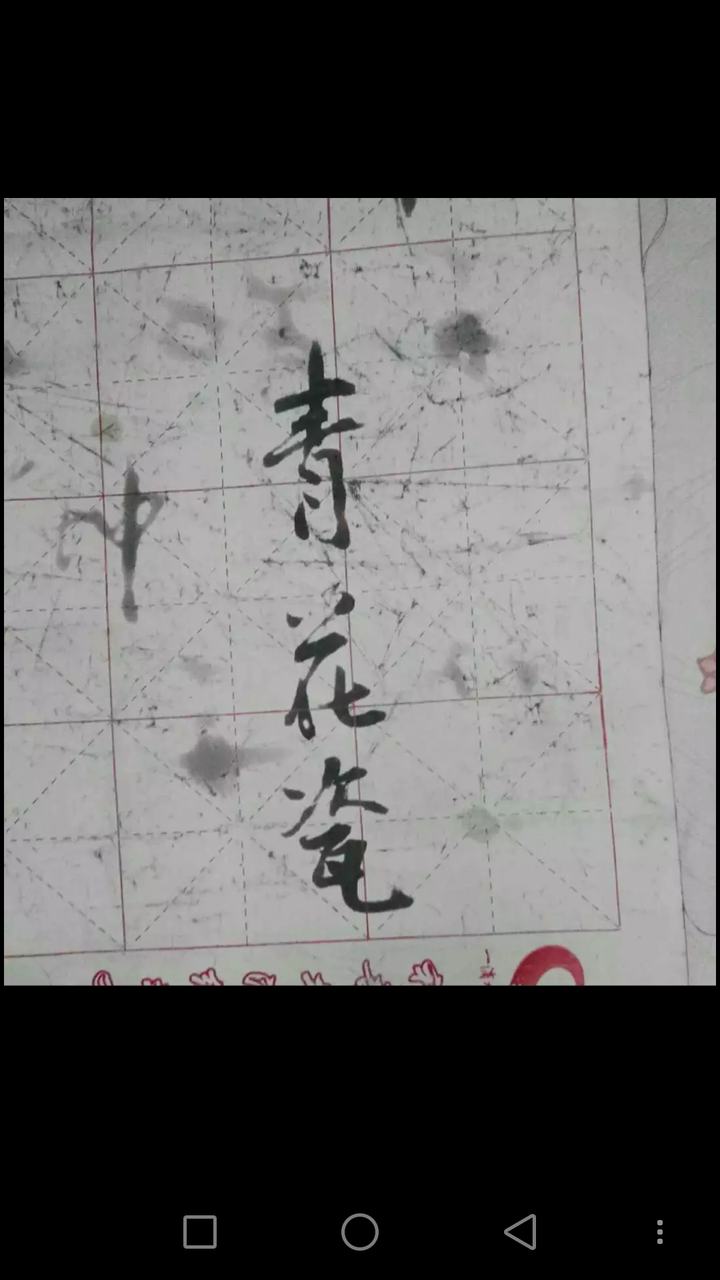 青花瓷
中